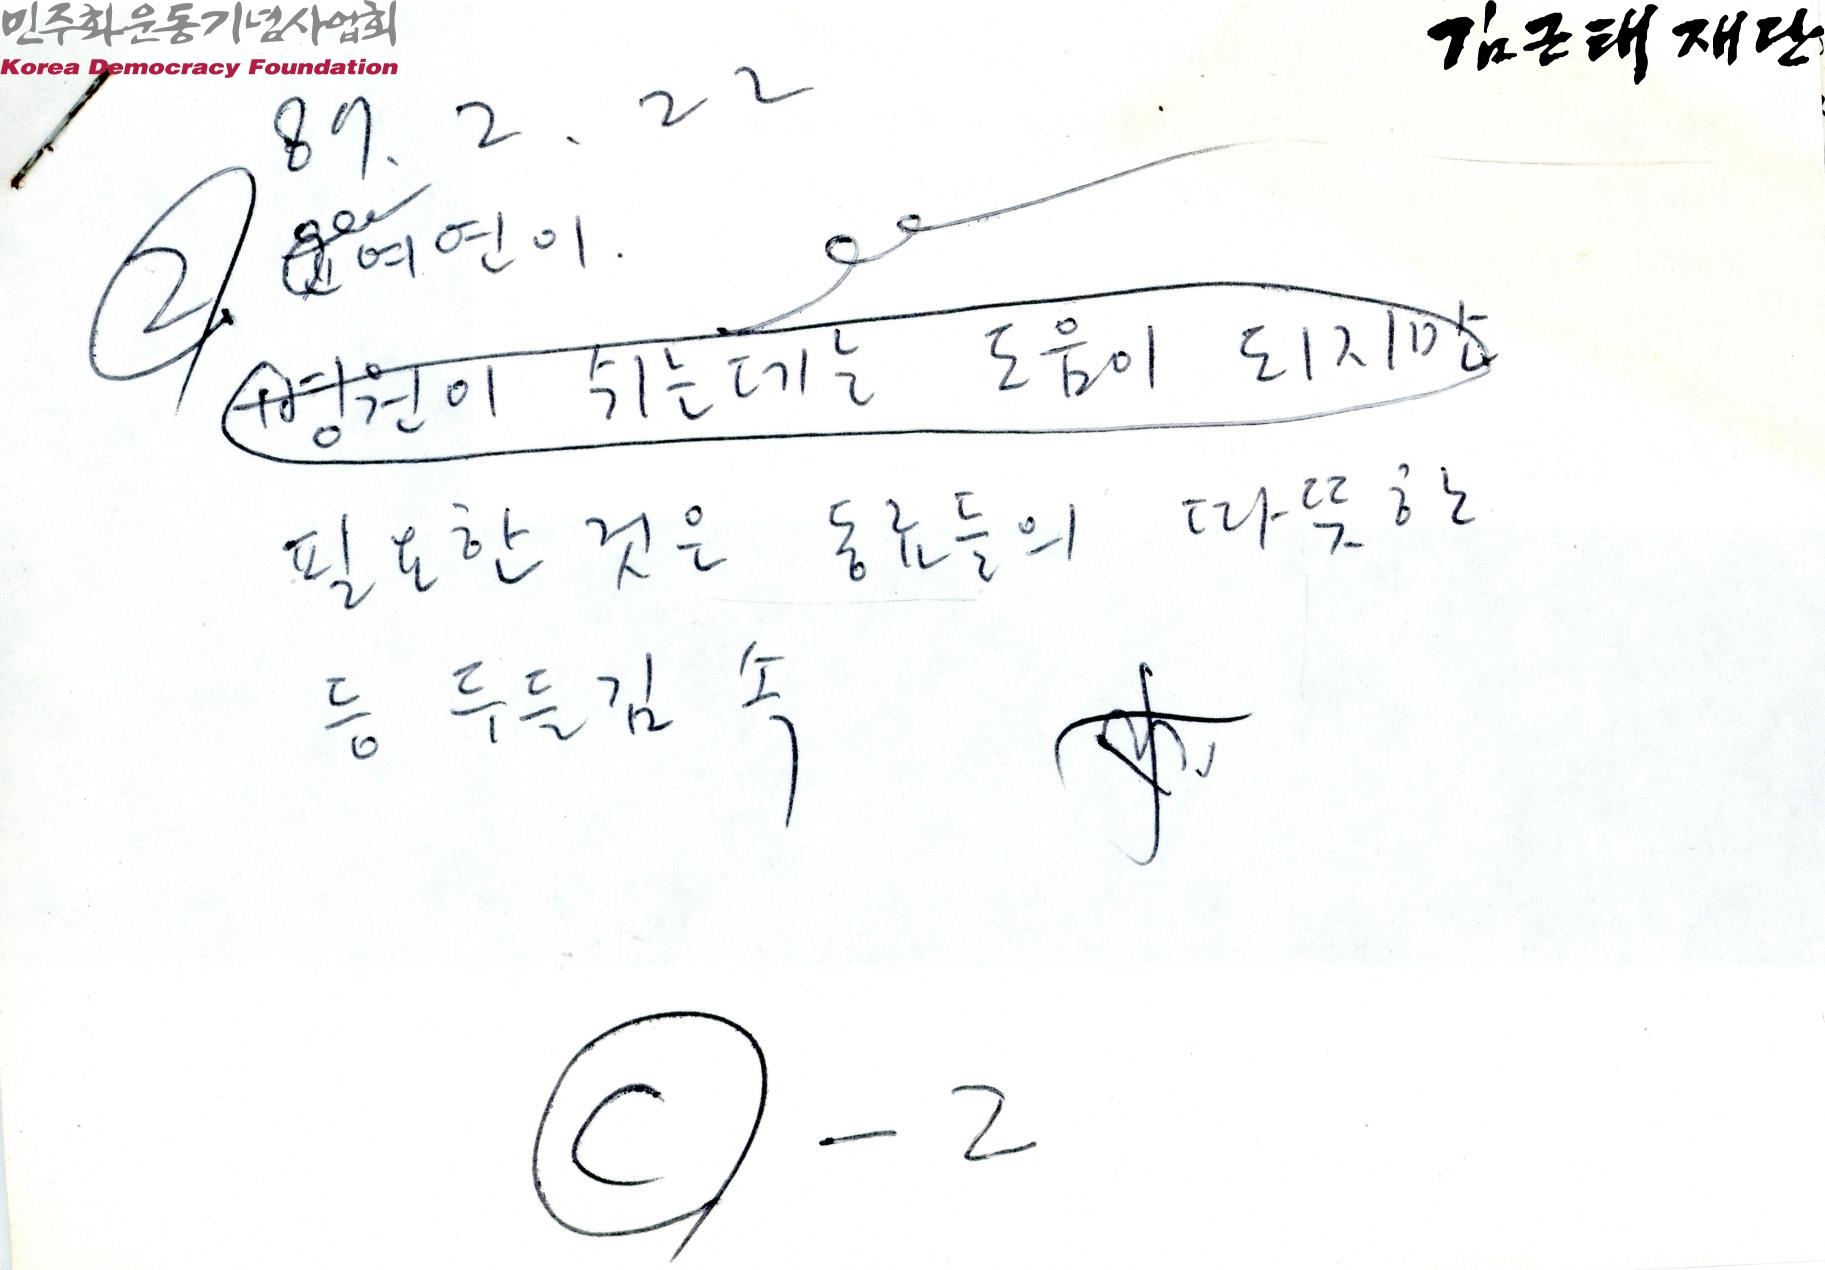 민주화운동기념사업회
Korea Democracy Foundation
김근태재단
89. 2. 22
2.
예연이.
병원이 쉬는데는 도움이 되지만
필요한 것은 동료들의 따뜻한
등 두들김 속
C - 2